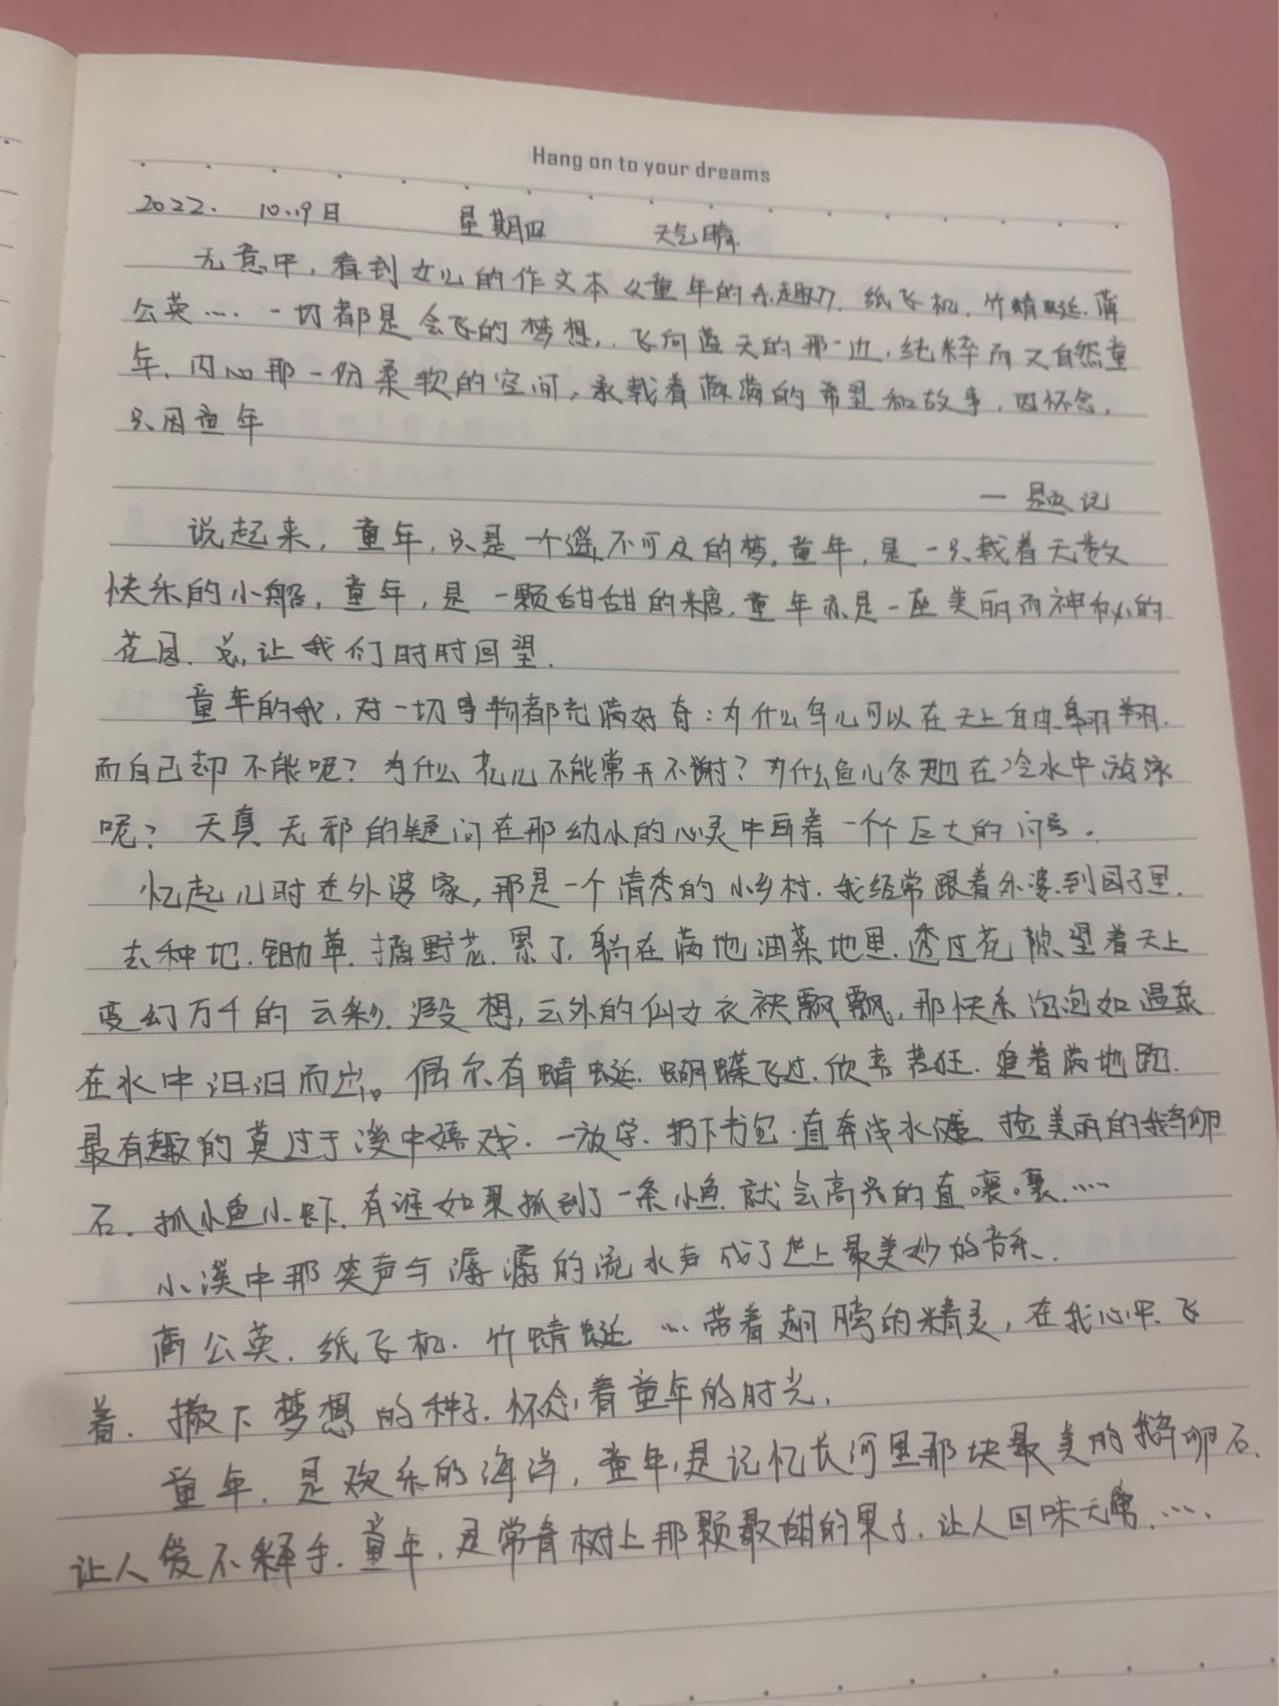 Hang on to your dreams
2022. 10.19日 星期四 天气晴.
无意中，看到女儿的作文本《童年的乐趣》. 纸飞机. 竹蜻蜓. 蒲
公英…. 一切都是会飞的梦想,. 飞向蓝天的那一边, 纯粹而又自然童
年. 内心那一份柔软的空间, 承载着满满的希望和故事. 因怀念,
只因童年
— 题记
说起来, 童年, 只是一个遥不可及的梦. 童年, 是一只载着无数
快乐的小船, 童年, 是一颗甜甜的糖. 童年亦是一座美丽而神秘的
花园. 总让我们时时回望.
童年的我, 对一切事物都充满好奇: 为什么鸟儿可以在天上自由翱翔.
而自己却不能呢? 为什么花儿不能常开不谢? 为什么鱼儿冬天在冷水中游泳
呢? 天真无邪的疑问在那幼小的心灵中画着一个个巨大的问号.
忆起儿时在外婆家, 那是一个清秀的小乡村. 我经常跟着外婆到园子里.
去种地. 锄草. 摘野花. 累了. 躺在满地油菜地里. 透过花隙望着天上
变幻万千的云彩. 遐想, 云外的仙女衣袂飘飘, 那快乐泡泡如温泉
在水中汩汩而出。偶尔有蜻蜓. 蝴蝶飞过. 欣喜若狂. 追着满地跑.
最有趣的莫过于溪中嬉戏. 一放学. 扔下书包. 直奔浅水滩 捡美丽的鹅卵
石. 抓小鱼小虾. 有谁如果抓到了一条小鱼. 就会高兴的直嚷嚷.….
小溪中那笑声与潺潺的流水声成了世上最美妙的音乐.
蒲公英. 纸飞机. 竹蜻蜓 … 带着翅膀的精灵, 在我心中飞
着. 撒下梦想的种子. 怀念着童年的时光.
童年. 是欢乐的海洋, 童年,是记忆长河里那块最美的鹅卵石.
让人爱不释手. 童年, 是常青树上那颗最甜的果子. 让人回味无穷.….